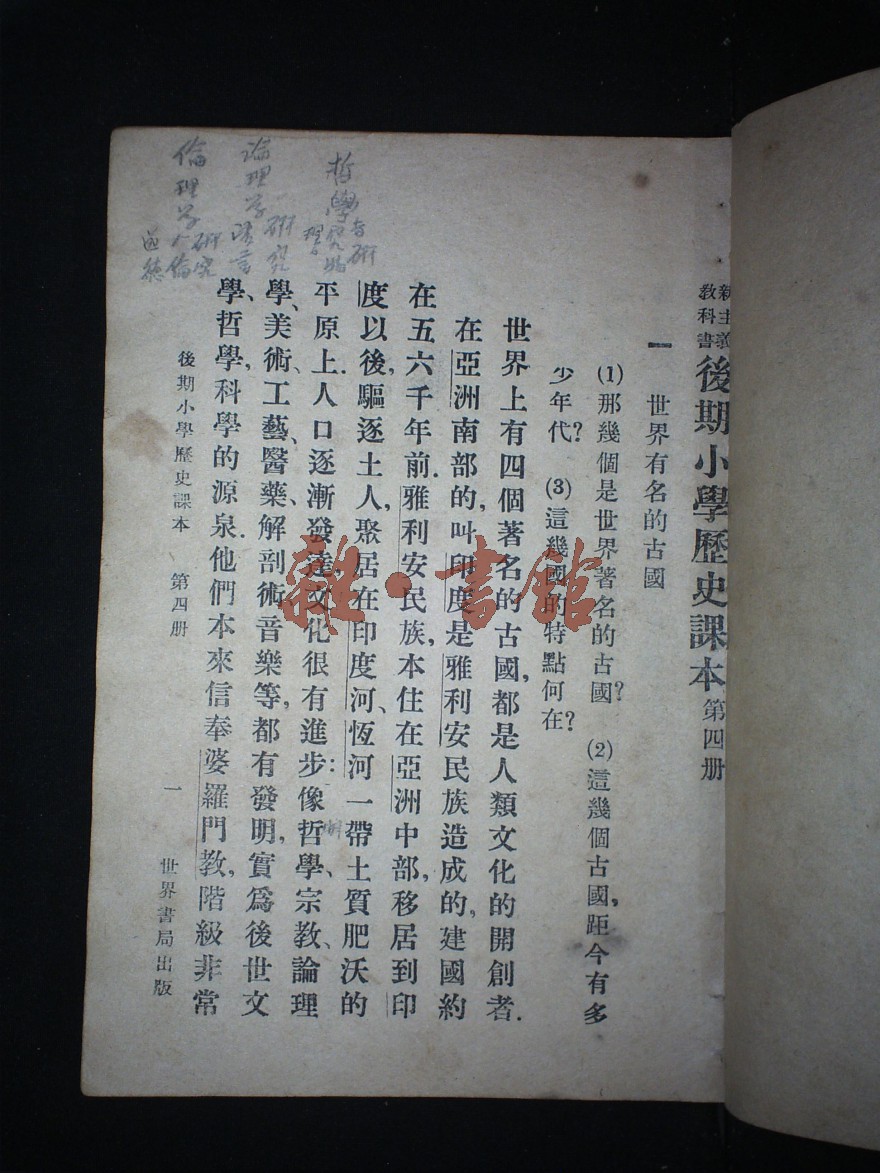 新主義教科書 後期小學歷史課本 第四册
一 世界有名的古國
(1)那幾個是世界著名的古國? (2)這幾個古國,距今有多
少年代? (3)這幾國的特點何在?
世界上有四個著名的古國,都是人類文化的開創者.
在亞洲南部的,叫印度是雅利安民族造成的,建國約
在五六千年前.雅利安民族,本住在亞洲中部,移居到印
度以後,驅逐土人,聚居在印度河、恆河一帶土質肥沃的
平原上.人口逐漸發達,文化很有進步:像哲學、宗教、論理
學、美術、工藝、醫藥、解剖術音樂等,都有發明,實為後世文
學、哲學,科學的源泉.他們本來信奉婆羅門教,階級非常
後期小學歷史課本 第四册 一 世界書局出版
哲學
論理學 研究
倫理學 研究人倫
道德
雜·書館